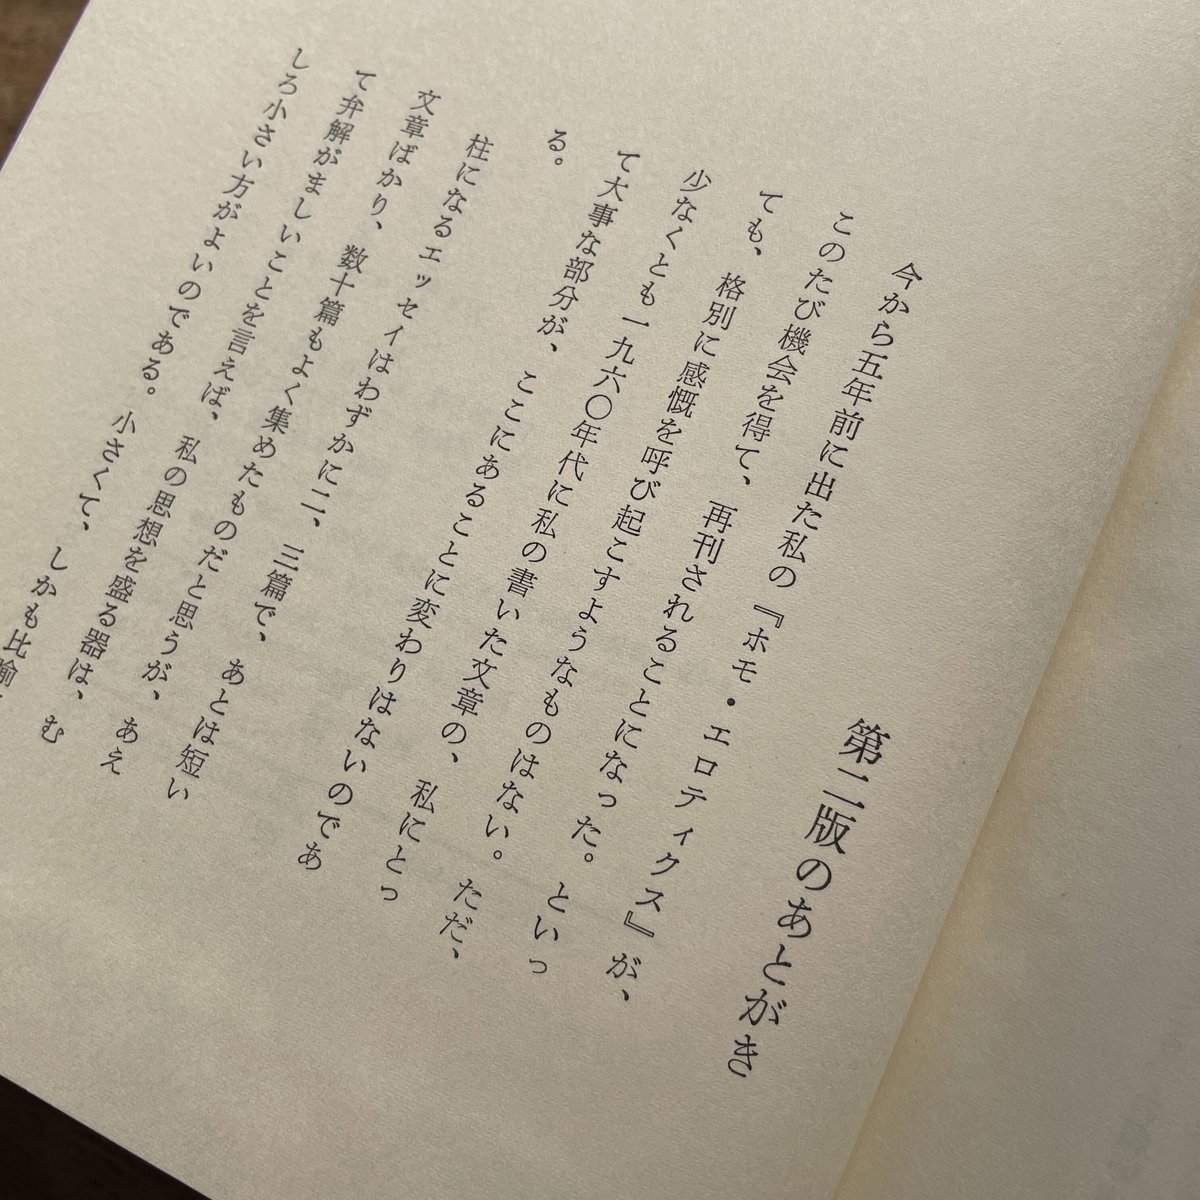 第二版のあとがき
今から五年前に出た私の『ホモ・エロティクス』が、
このたび機会を得て、再刊されることになった。といっ
ても、格別に感慨を呼び起こすようなものはない。ただ、
少なくとも一九六〇年代に私の書いた文章の、私にとっ
て大事な部分が、ここにあることに変わりはないのであ
る。
柱になるエッセイはわずかに二、三篇で、あとは短い
文章ばかり、数十篇もよく集めたものだと思うが、あえ
て弁解がましいことを言えば、私の思想を盛る器は、む
しろ小さい方がよいのである。小さくて、しかも比喩